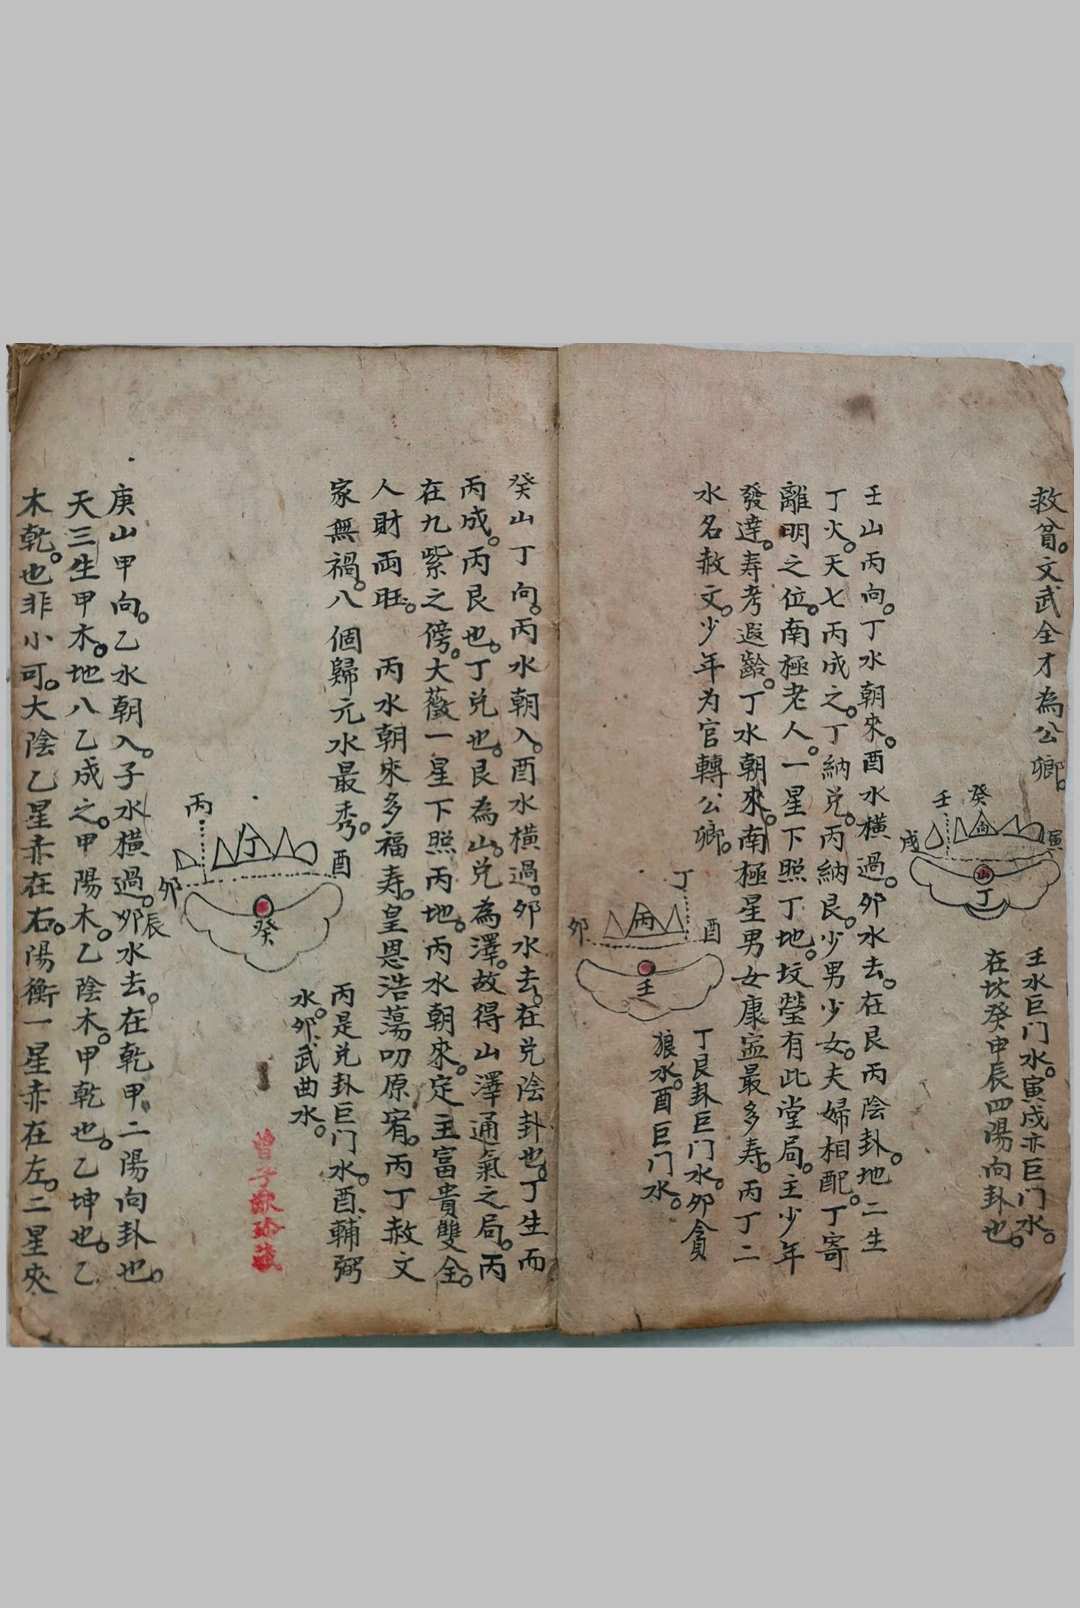 救貧。文武全才為公卿。
癸
壬
向
戌
寅
山
丁
壬水巨门水。寅戌亦巨门水。
在坎癸申辰四陽向卦也。
壬山丙向。丁水朝來。酉水橫過。卯水去。在艮丙陰卦。地二生
丁火。天七丙成之。丁納兑。丙納艮。少男少女。夫婦相配。丁寄
離明之位。南極老人。一星下照丁地。坟瑩有此堂局。主少年
發達。寿考遐齡。丁水朝來。南極星男女康寍最多寿。丙丁二
水名赦文。少年为官轉公卿。
丁
卯
丙
酉
壬
丁艮卦巨门水。卯貪
狼水。酉巨门水。
癸山丁向。丙水朝入。酉水橫過。卯水去。在兑陰卦也。丁生而
丙成。丙艮也。丁兑也。艮為山。兑為澤。故得山澤通氣之局。丙
在九紫之傍。大薇一星下照丙地。丙水朝來。定主富貴雙全。
人財両旺。 丙水朝來多福寿。皇恩浩蕩叨原宥。丙丁赦文
家無禍。八個歸元水最秀。
丙
丁
酉
卯
癸
丙是兑卦巨门水。酉輔弼
水。卯武曲水。
庚山甲向。乙水朝入。子水橫過。卯辰水去。在乾甲二陽向卦也。
天三生甲木。地八乙成之。甲陽木。乙陰木。甲乾也。乙坤也。乙
木乾。也非小可。大陰乙星赤在右。陽衡一星赤在左。二星夾